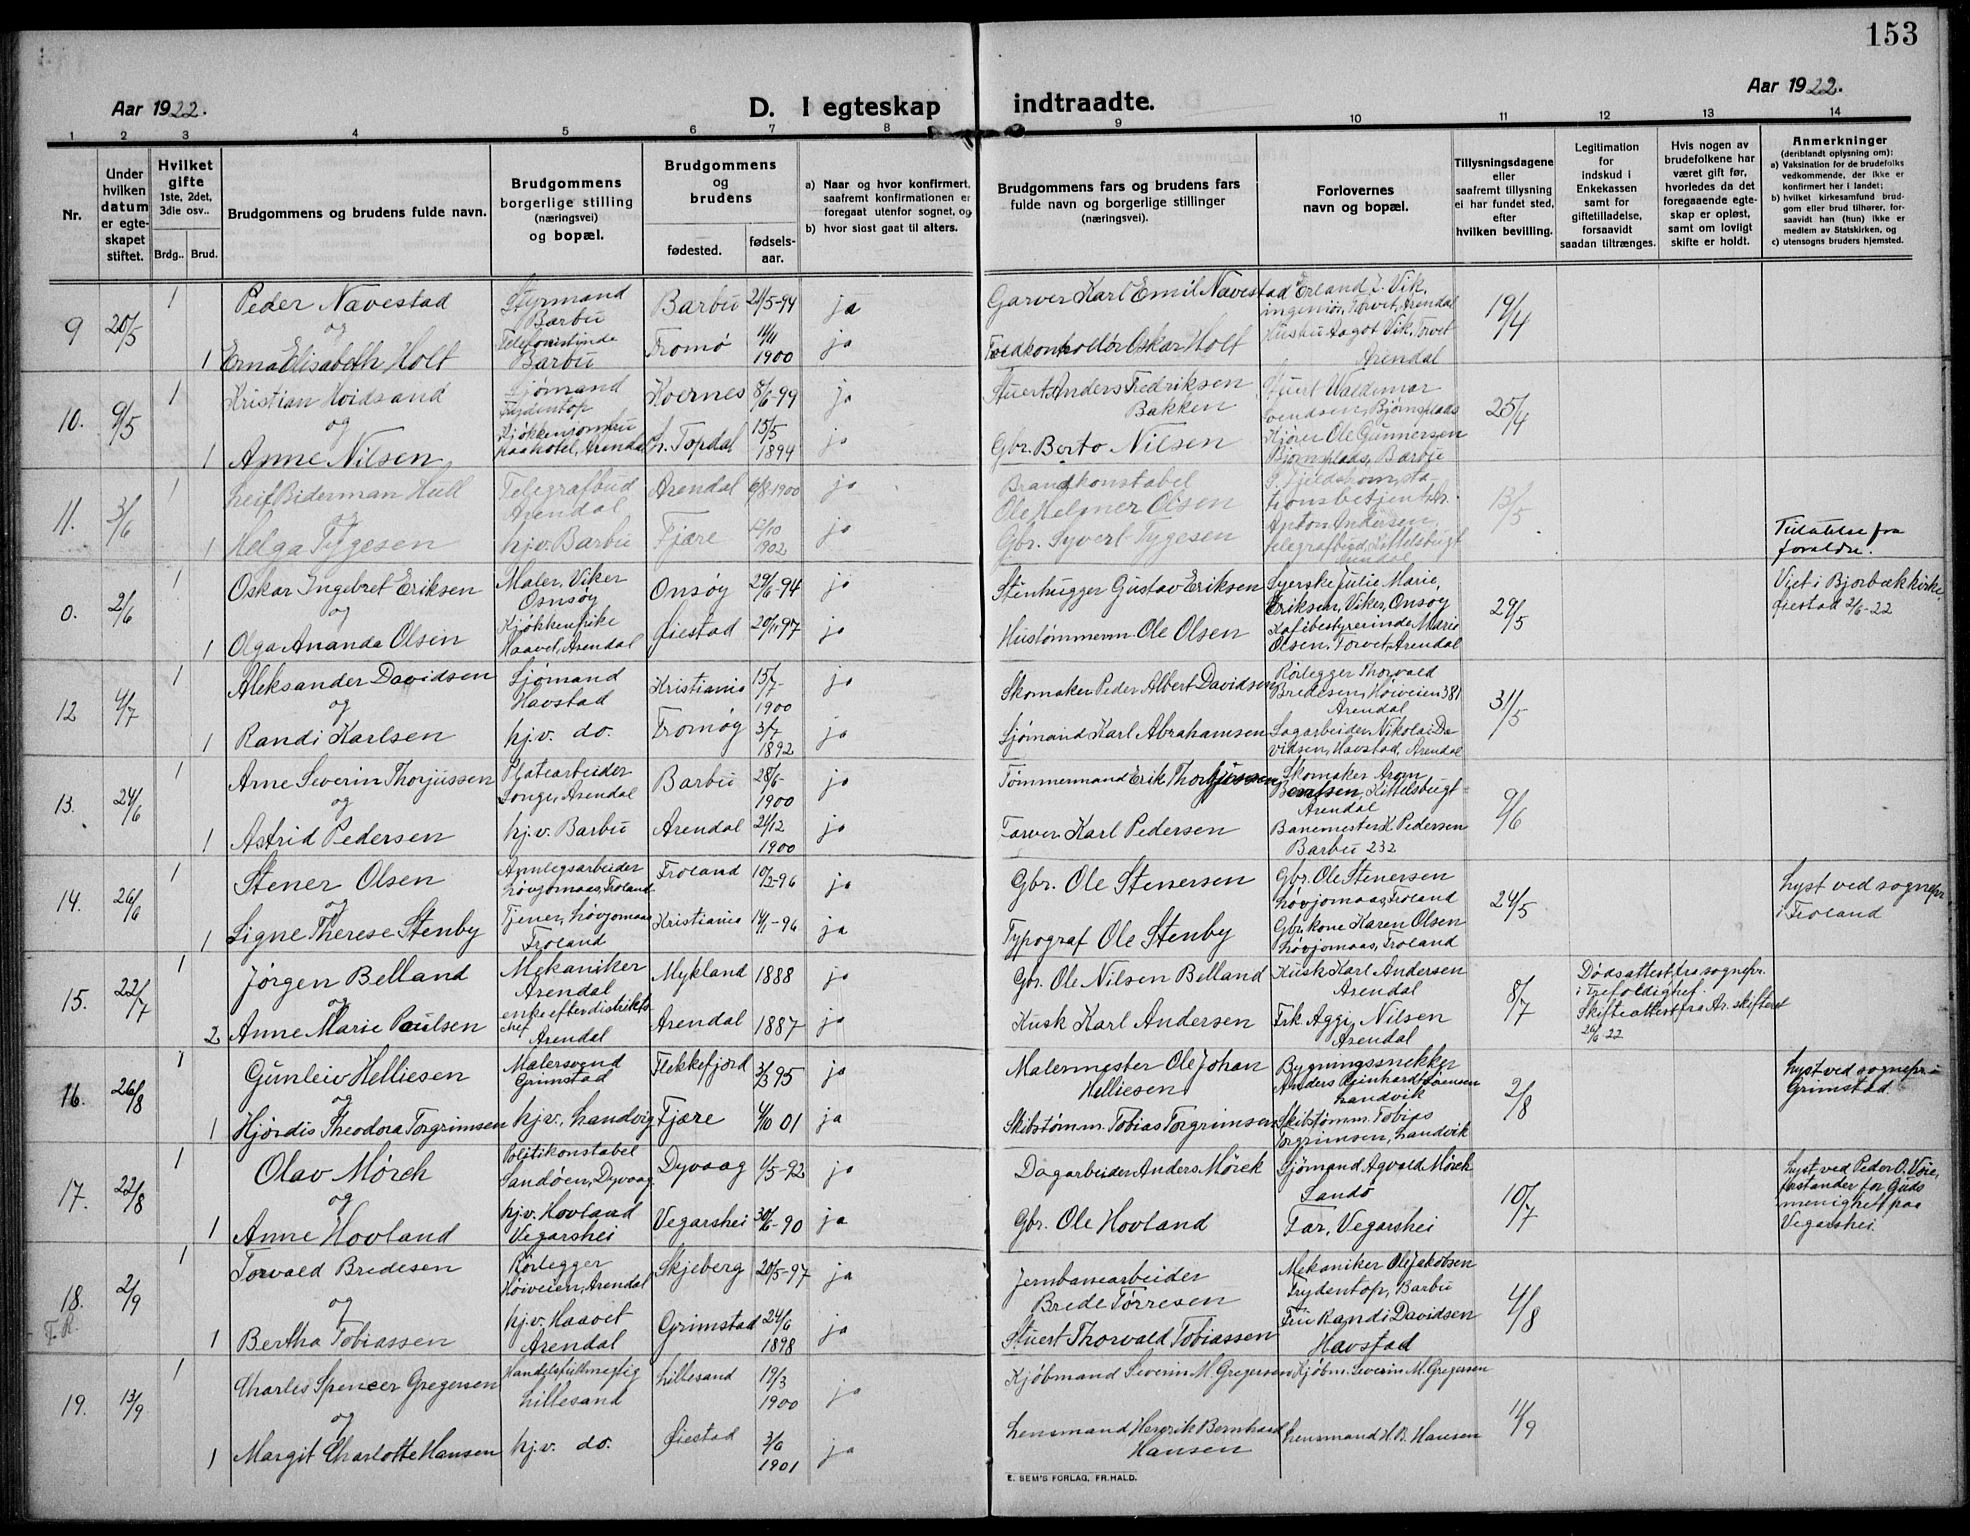 153
Aar 1922.
D. I egteskap indtraadte.
Aar 1922.
1 2 3 4 5 6 7 8 9 10 11 12 13 14
Nr.
Under hvilken datum er egte-skapet stiftet.
Hvilket gifte
1ste, 2det, 3die osv..
Brdg.. Brud.
Brudgommens og brudens fulde navn.
Brudgommens borgerlige stilling (næringsvei) og bopæl.
Brudgommens og brudens
fødested.
fødsels-aar.
a) Naar og hvor konfirmert, saafremt konfirmationen er foregaat utenfor sognet, og
b) hvor sidst gaat til alters.
Brudgommens fars og brudens fars fulde navn og borgerlige stillinger (næringsvei).
Forlovernes navn og bopæl.
Tillysningsdagene eller saafremt tillysning ei har fundet sted, efter hvilken bevilling.
Legitimation for indskud i Enkekassen samt for giftetilladelse, forsaavidt saadan tiltrænges.
Hvis nogen av brudefolkene har været gift før, hvorledes da det foregaaende egte-skap er opløst, samt om lovligt skifte er holdt.
Anmerkninger
(deriblandt oplysning om):
a) Vaksination for de brudefolks vedkommende, der ikke er konfirmert her i landet;
b) hvilket kirkesamfund brud-gom eller brud tilhører, for-saavidt han (hun) ikke er medlem av Statskirken, og
c) utensogns bruders hjemsted.
9 20/5 1 Peder Navestad Styrmand Barbu Barbu 21/5-94 ja Garver Karl Emil Navestad Erland J. Vik, ingeniør, Torvet, Arendal 19/4
og
1 Erna Elisabeth Holt Telefonistinde Barbu Tromø 1900 ja Oskar Holt Hustru Aagot Vik, Torvet Arendal
10. 9/5 1 Kristian Hoidsand Sjømand Frydentop 8/6-99 ja Stuert Anders Fredriksen Bakken Stuert Valdemar Svendsen, Bjørnsplads 25/4
og
1 Anne Nilsen Kjøkkenjomfru paa hotel, Arendal Topdal 15/5 1894 ja Gbr. Berto Nilsen Kjører Ole Gunnersen Bjørnsplads, Barbu
11. 3/6 1 Leif Biderman Hull Telegrafbud Arendal Arendal 6/8-1900 ja Brandkonstabel Ole Helmer Olsen stationsbetjent 13/5
og
1 Helga Tygesen hj.v. Barbu Fjære 12/10 1902 ja Gbr. Syvert Tygesen Anton Andersen, telegrafbud, Kittelsbugt Arendal Tilladelse fra foraldre.
0. 2/6 1 Oskar Ingebret Eriksen Maler, Viker Onsøy Onsøy 29/6-94 ja Stenhugger Gustav Eriksen Syerske Julie Marie Eriksen, Viker, Onsøy 29/5 Viet i Bjorbæk kirke, Øiestad 2/6-22
og
1 Olga Ananda Olsen Kjøkkenpike Haavet, Arendal Øiestad 20/1 97 ja Hustømmerm. Ole Olsen Kafebestyrerinde Marie Olsen, Torvet, Arendal
12 4/7 1 Aleksander Davidsen Sjømand Havstad Kristiania 15/7 1900 ja Skomaker Peder Albert Davidsen Rørlegger Thorvald Bredesen, Høiveien 381 Arendal 31/5
og
1 Randi Karlsen hj.v. do. Tromøy 3/7 1892 ja Sjømand Karl Abrahamsen Sagarbeider Nikolai Davidsen, Havstad, Arendal
13. 24/6 1 Arne Severin Thorjussen Platearbeider Songe, Arendal Barbu 28/6-1900 ja Tømmermand Erik Thorjussen Skomaker Arom Berntsen, Kittelsbugt Arendal 9/6
og
1 Astrid Pedersen hj.v. Barbu Arendal 21/12 1900 ja Farver Karl Pedersen Banemester K. Pedersen Barbu 232
14. 26/6 1 Stener Olsen Anlegsarbeider Løvjomaas, Froland Froland 10/2-96 ja Gbr. Ole Stenersen Gbr. Ole Stenersen Løvjomaas, Froland 24/5 Lyst ved sognepr. i Froland
og
1 Signe Therese Stenby Tjener, Løvjomaas Froland Kristiania 14/1-96 ja Typograf Ole Stenby Gbr.kone Karen Olsen Løvjomaas, Froland
15. 22/7 1 Jørgen Belland Mekaniker Arendal Mykland 1888 ja Gbr. Ole Nilsen Belland Kusk Karl Andersen Arendal 8/7 Dødsattest fra sognepr. i Trefoldighet. Skifteattest fra Ar. skifteret 26/6 22
og
2 Anne Marie Paulsen enke efter distriktschef Arendal Arendal 1887 ja Kusk Karl Andersen Frk. Aggi Nilsen Arendal
16. 26/8 1 Gunleiv Helliesen Malersvend Grimstad Flekkefjord 3/3 95 ja Malermester Ole Johan Helliesen Bygningssnekker Anders Reinhardt Sørensen Landvik 2/8 Lyst ved sognepr. i Grimstad
og
1 Hjørdis Theodora Torgrimsen hj.v., Landvig Fjære 4/10 01 ja Skibstømm. Tobias Torgrimsen Skibstømm. Tobias Torgrimsen, Landvik
17. 22/8 1 Olav Mörch Politikonstabel Sandøen, Dyvaag Dyvaag 1/5-92 ja Dagarbeider Anders Mörck Sjømand Agvald Mörck Sandø 10/7 Lyst ved Peder O. Veie, forstander for Guds menighet paa Vegarshei.
og
1 Anne Hovland hj.v. Hovland Vegarshei Vegarshei 30/6-90 ja Gbr. Ole Hovland Far, Vegarshei
18. F.R. 2/9 1 Torvald Bredesen Rørlegger Høiveien, Arendal Skjeberg 20/5-97 ja Jernbanearbeider Brede Tørresen Mekaniker Ole Jakobsen Frydentop, Barbu 4/8
og
1 Bertha Tobiassen hj.v. Haavet Arendal Grimstad 24/6 1898 ja Stuert Thorvald Tobiassen Fru Randi Davidsen Havstad
19. 13/9 1 Charles Spencer Gregersen Handelsfuldmegtig Lillesand Lillesand 19/3 1900 ja Kjøbmand Severin M. Gregersen Kjøbm. Severin M. Gregersen 11/9
og
1 Margit Charlotte Hansen hj.v. do. Øiestad 3/6 1901 ja Lensmand Henrik Bernhard Hansen Lensmand H.B. Hansen
E. SEM'S FORLAG, FR.HALD.